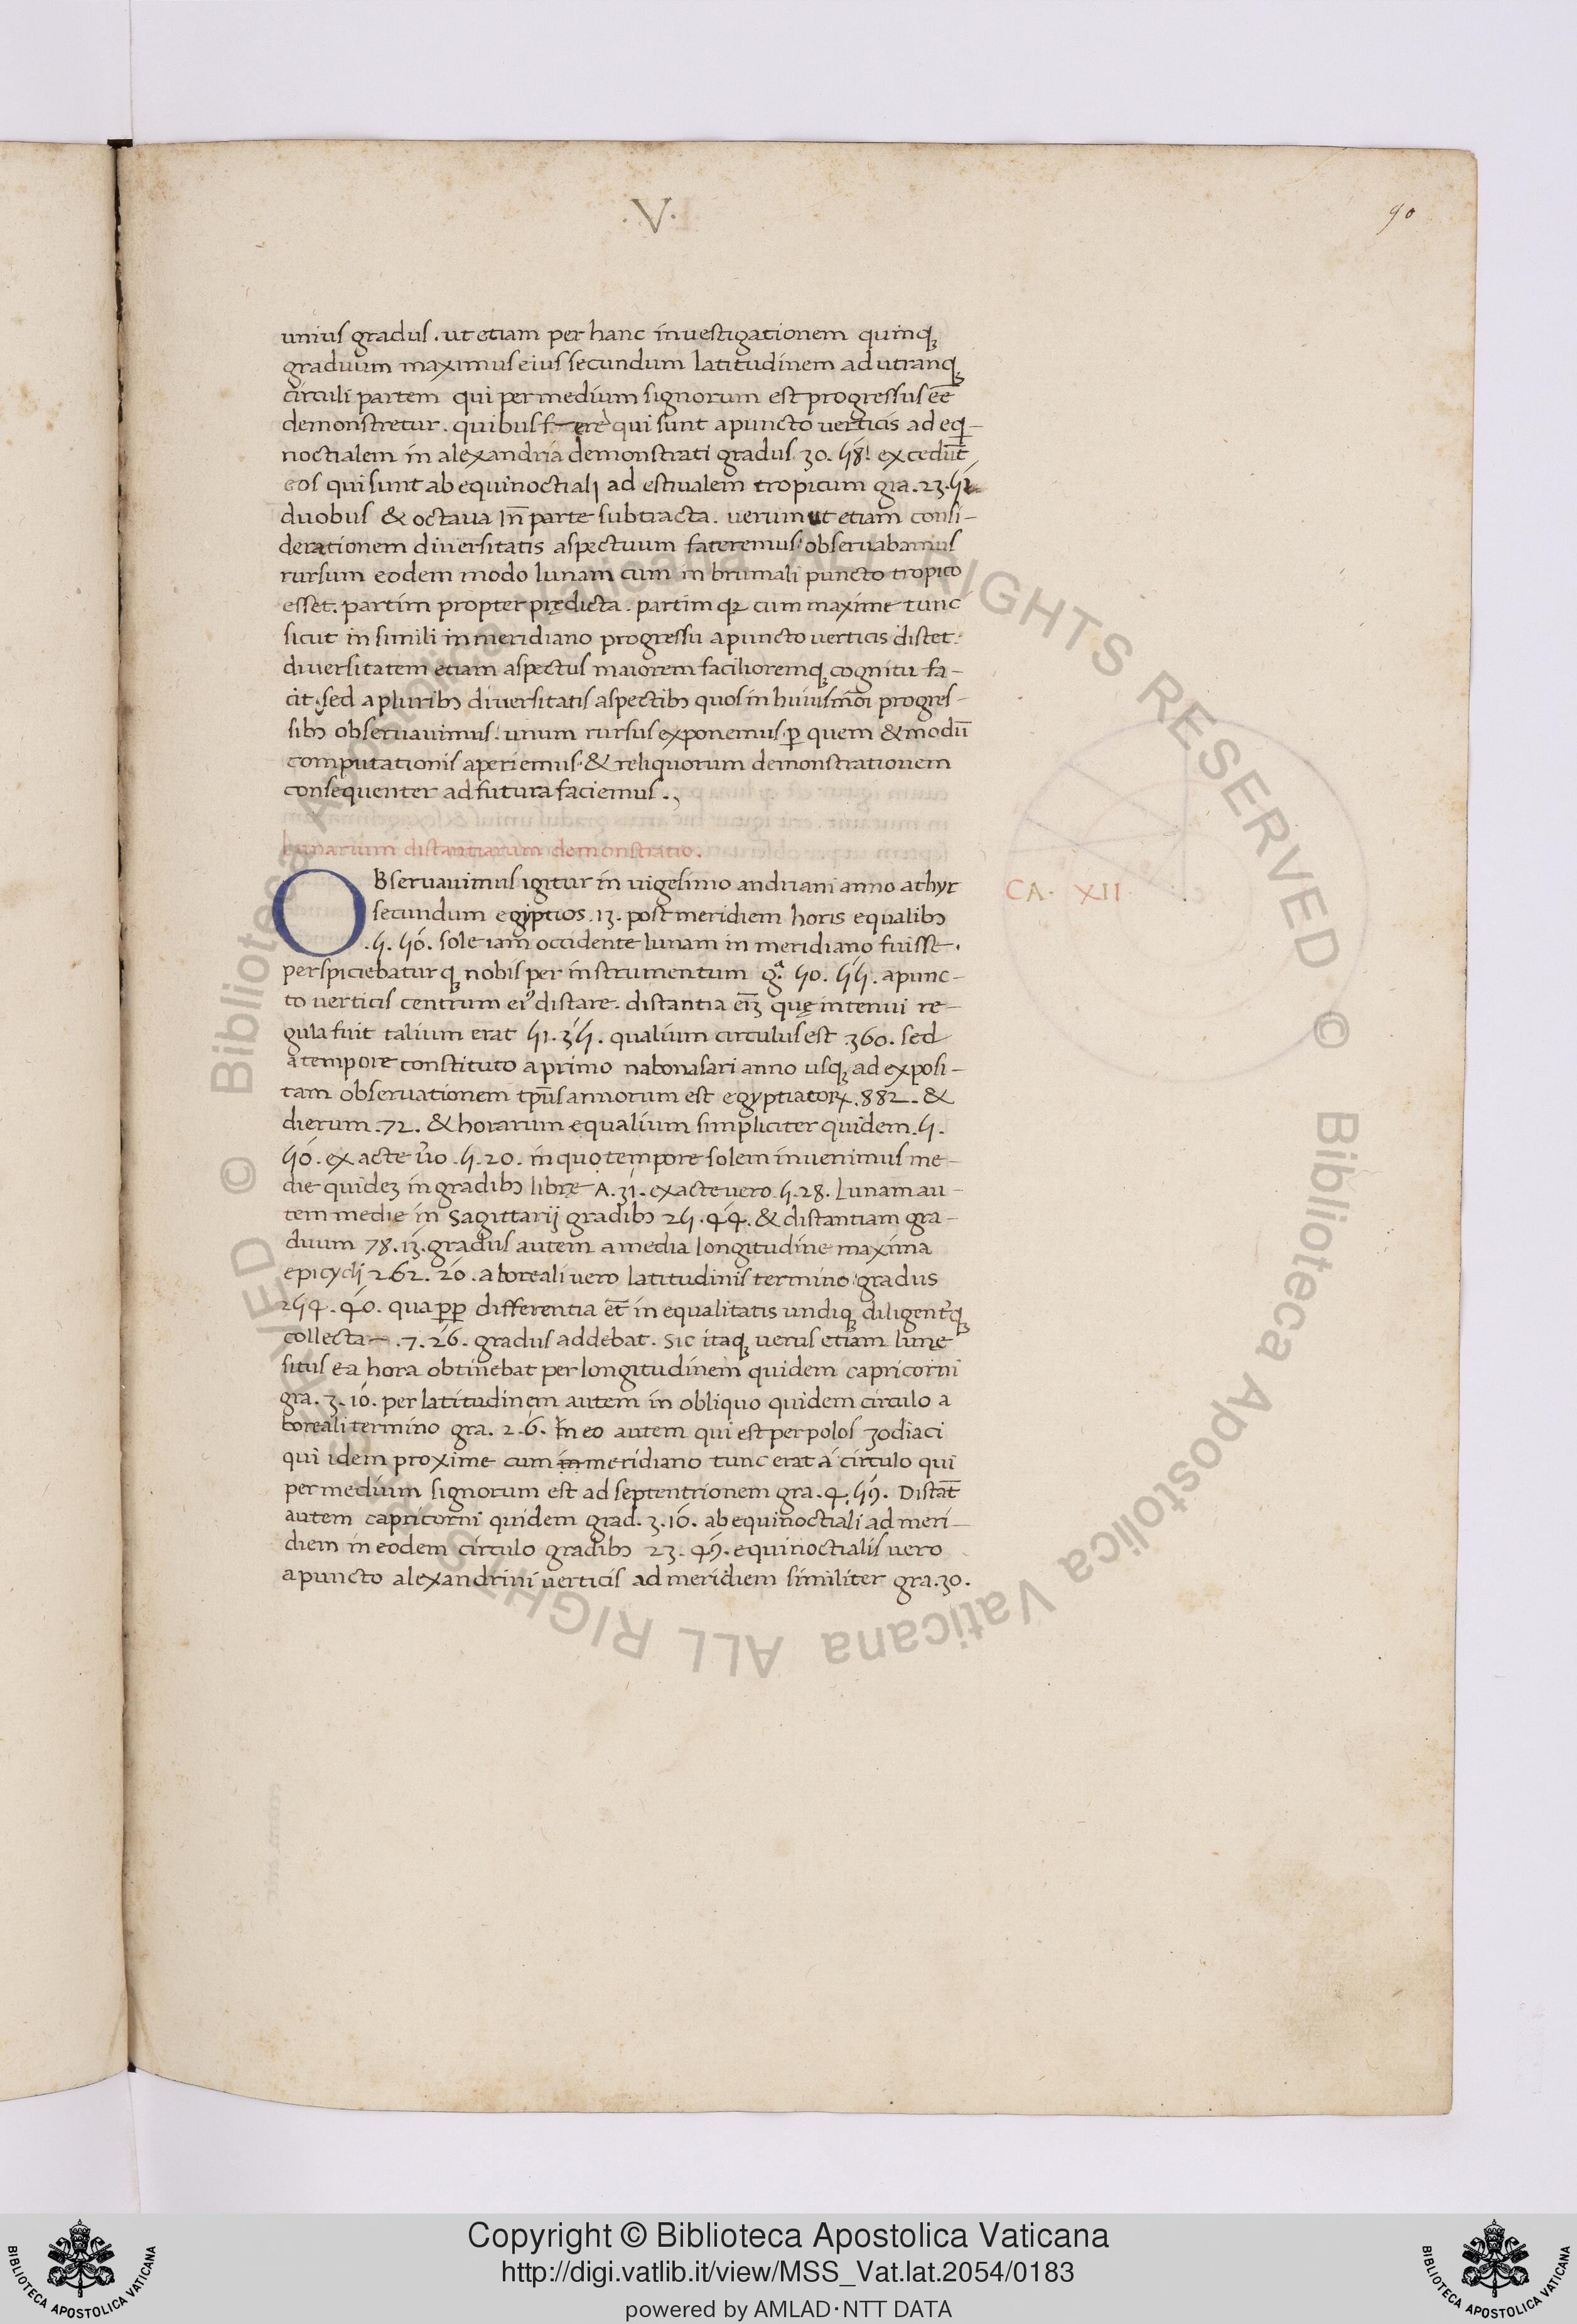 .V.
90
unius gradus. ut etiam per hanc investigationem quinqꝫ
graduum maximus eius secundum latitudinem ad utranqꝫ
circuli partem qui per medium signorum est progressus eē
demonstretur. quibus fere qui sunt a puncto verticis ad eqi-
noctialem in alexandria demonstrati gradus 30. 58. excedūt
eos qui sunt ab equinoctiali ad estivalem tropicum gra. 23. 51
duobus & octava In̄ parte subtracta. verum ut etiam consi-
derationem diversitatis aspectuum fateremus: observabamus
rursum eodem modo lunam cum in brumali puncto tropico
esset. partim propter prędicta. partim qꝛ cum maxime tunc
sicut in simili in meridiano progressu a puncto verticis distet.
diversitatem etiam aspectus maiorem facilioremqꝫ cognitu fa-
cit. sed a pluribꝯ diversitatis aspectibꝯ quos in huiusmōi progres-
sibꝯ observavimus: unum rursus exponemus. ꝑ quem & modū
computationis aperiemus. & reliquorum demonstrationem
consequenter ad futura faciemus.,
Lunarium distantiarum demonstratio.
OBservavimus igitur in vigesimo andriani anno athyr
CA. XII
secundum egiptios. 13. post meridiem horis equalibꝯ
.5. 50. sole iam occidente lunam in meridiano fuisse.
perspiciebaturqꝫ nobis per instrumentum gᵃ. 50. 55. a punc-
to verticis centrum eiꝰ distare. distantia eīꝫ quę in tenui re-
gula fuit talium erat 51. 35. qualium circulus est .360. sed
a tempore constituto a primo nabonasari anno usqꝫ ad exposi-
tam observationem tp̄us annorum est egyptiacoꝝ .882. &
dierum .72. & horarum equalium simpliciter quidem .5.
50. exacte v̄o .5. 20. in quo tempore solem invenimus me-
die quideꝫ in gradibꝯ librę A. 31. exacte vero 5. 28. Lunam au-
tem medie in Sagittarij gradibꝯ 25. 44. & distantiam gra-
duum 78. 13. gradus autem a media longitudine maxima
epicycli 262. 20. a boreali vero latitudinis termino gradus
254. 40. quaꝓꝑ differentia et̄ inequalitatis undiqꝫ diligenterqꝫ
collecta .7. 26. gradus addebat. Sic itaqꝫ verus etiam lunę
situs ea hora obtinebat per longitudinem quidem capricorni
gra. 3. 10. per latitudinem autem in obliquo quidem circulo a
boreali termino gra. 2. 6. In eo autem qui est per polos zodiaci
qui idem proxime cum in meridiano tunc erat a circulo qui
per medium signorum est ad septentrionem gra. 4. 59. Distāt
autem capricorni quidem grad. 3. 10. ab equinoctiali ad meri-
diem in eodem circulo gradibꝯ 23. 49. equinoctialis vero
a puncto alexandrini verticis ad meridiem similiter gra. 30.
Copyright © Biblioteca Apostolica Vaticana
http://digi.vatlib.it/view/MSS_Vat.lat.2054/0183
powered by AMLAD·NTT DATA
BIBLIOTECA APOSTOLICA VATICANA
BIBLIOTECA APOSTOLICA VATICANA
© Biblioteca Apostolica Vaticana ALL RIGHTS RESERVED © Biblioteca Apostolica Vaticana ALL RIGHTS RESERVED